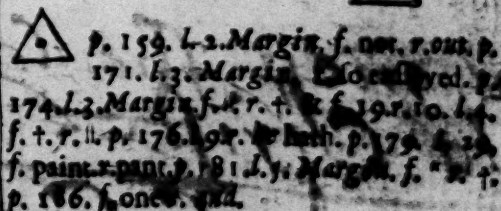 p. 159. l. 2. Margin. f. not. r. out. p.
171. l. 3. Margin.
174. l. 3. Margin. f. r. †. & f. 19. r. 10. l. 4.
f. †. r. ||. p. 176. 9. r. hath. p. 179. l. 29.
f. paint. r. pant. p. 181. l. 3. Margin. f. " r. †.
p. 186. f. one r. and.